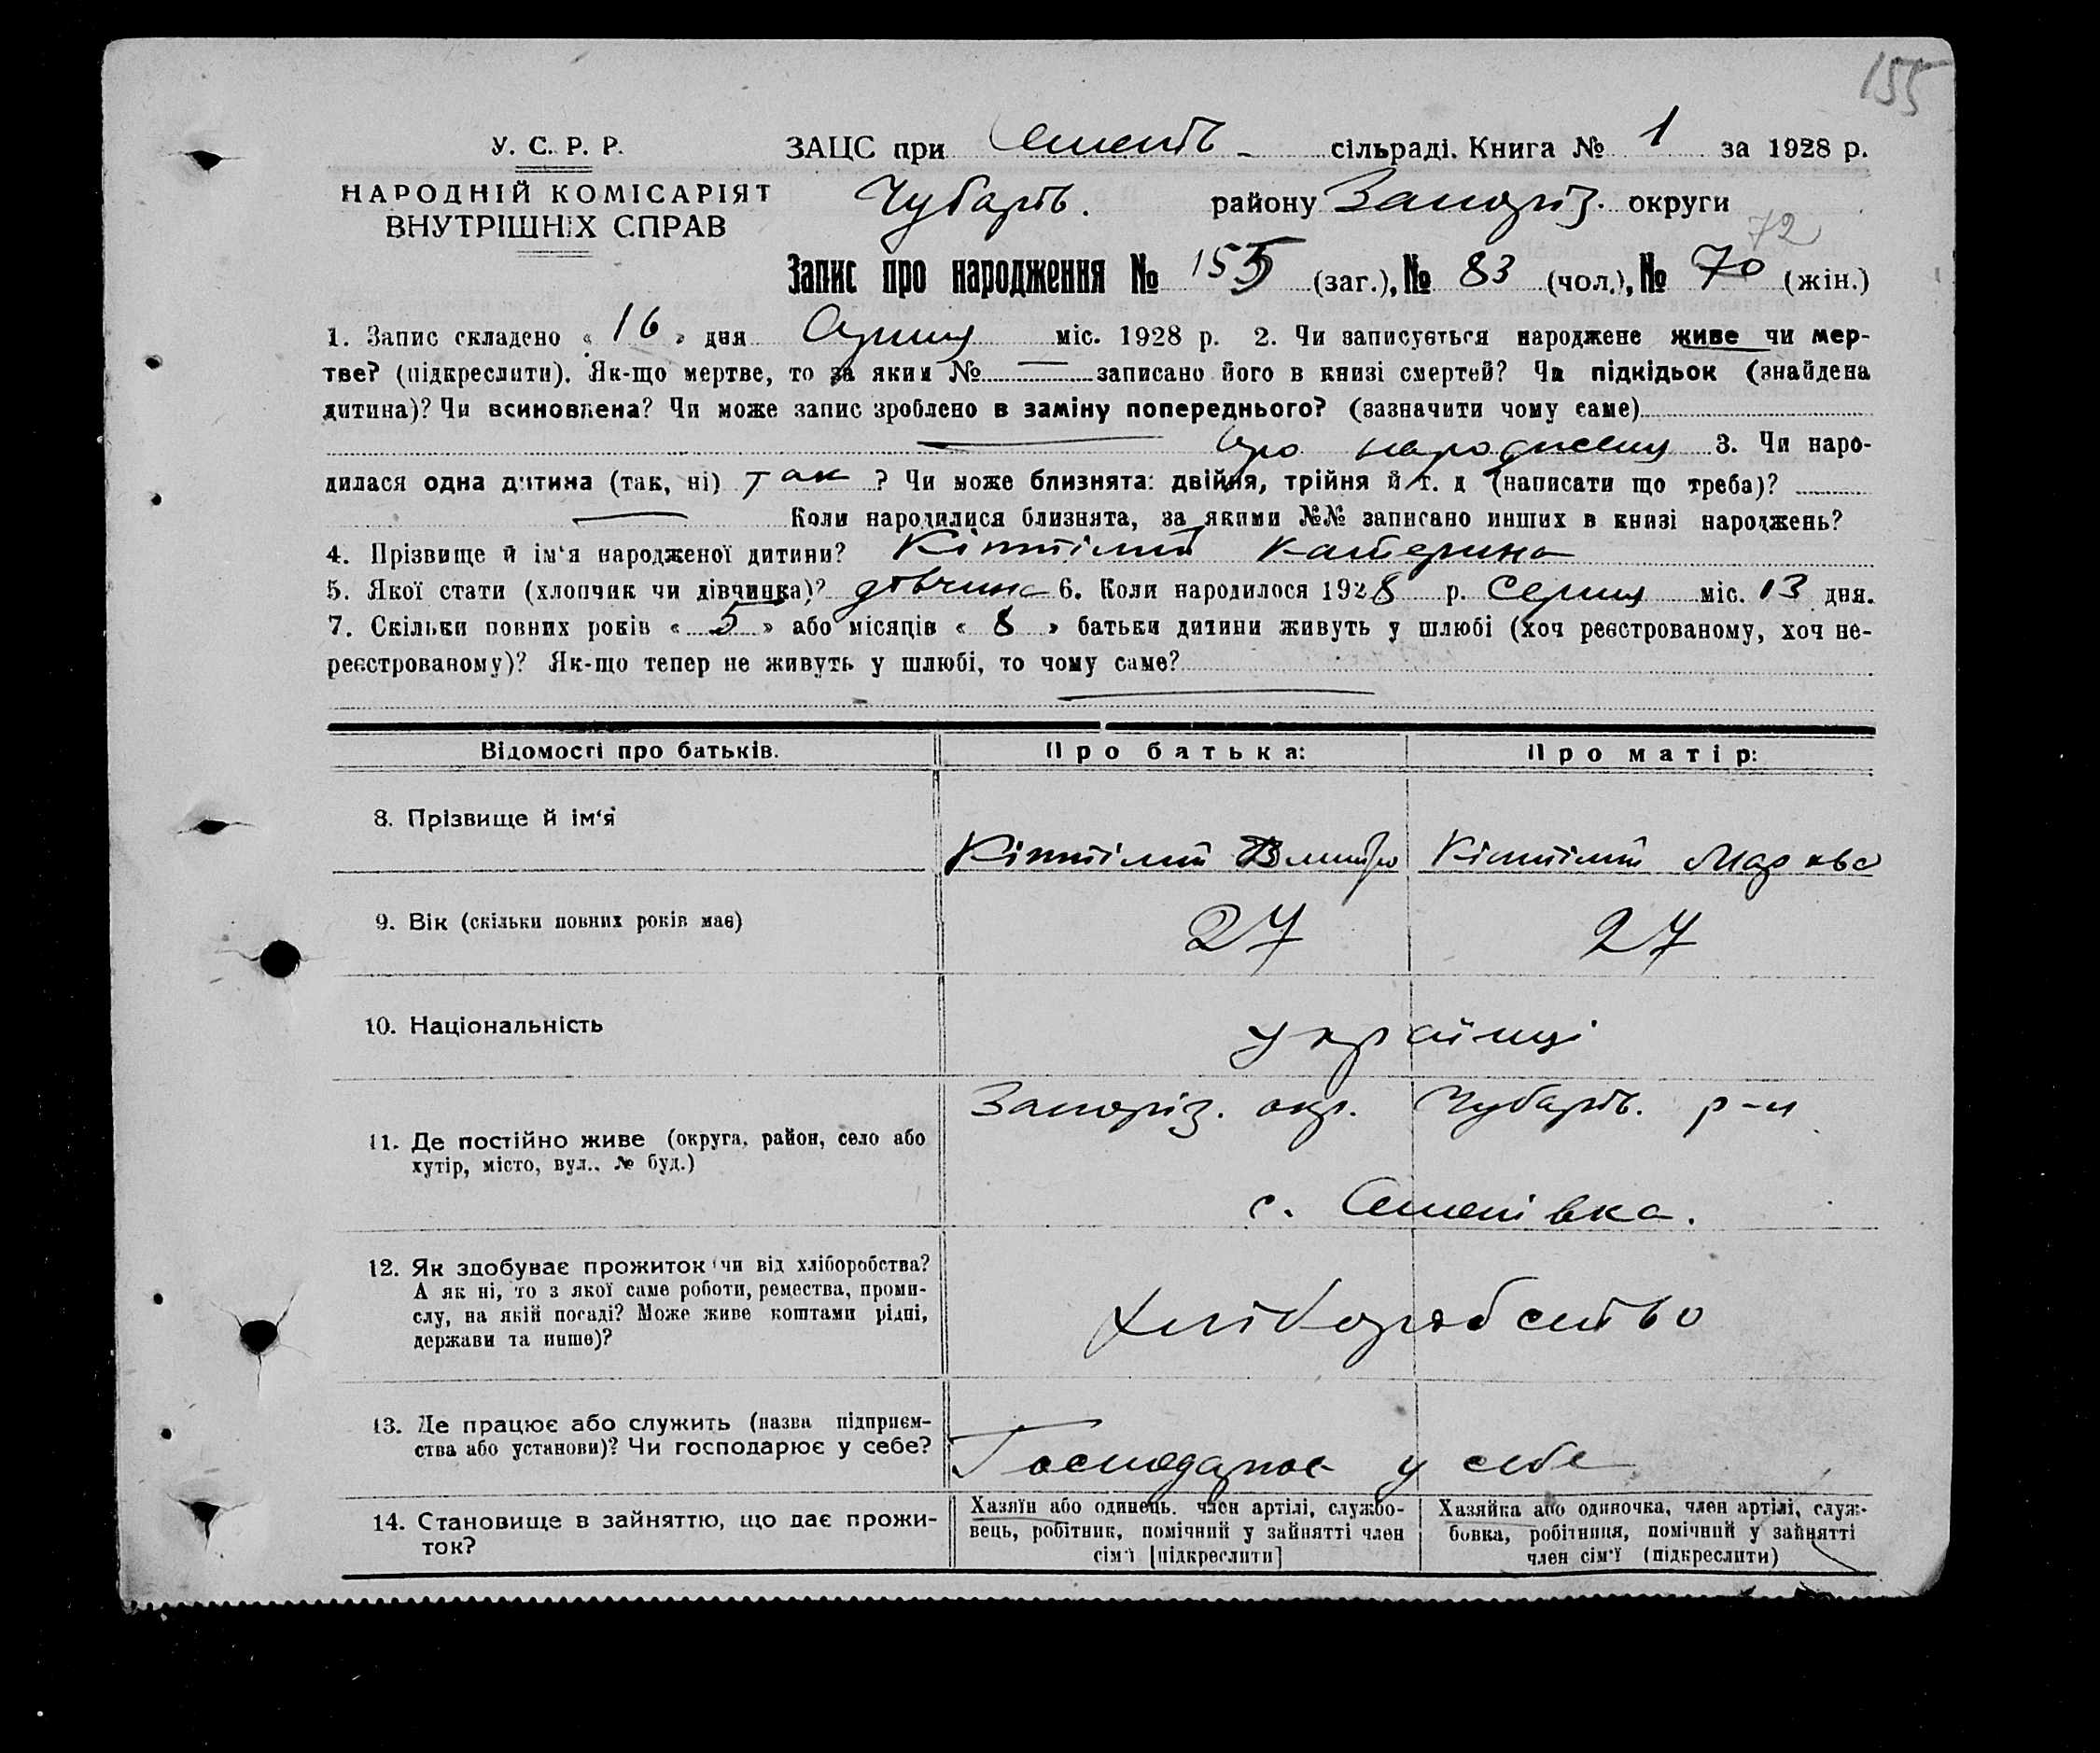 155
У. С. Р. Р.
НАРОДНІЙ КОМІСАРІЯТ
ВНУТРІШНІХ СПРАВ
ЗАЦС при Семенів- сільраді. Книга № 1 за 1928 р.
Чубарів. району Запоріз. округи
72
Запис про народження № 155 (заг.), № 83 (чол.), № 70 (жін.)
1. Запис складено « 16 » дня Серпня міс. 1928 р. 2. Чи записується народжене живе чи мер-
тве? (підкреслити). Як-що мертве, то за яким № — записано його в книзі смертей? Чи підкідьок (знайдена
дитина)? Чи всиновлена? Чи може запис зроблено в заміну попереднього? (зазначити чому саме)
— про народження 3. Чи наро-
дилася одна дитина (так, ні) так ? Чи може близнята: двійня, трійня й т. д (написати що треба)?
— Коли народилися близнята, за якими №№ записано инших в книзі народжень?
4. Прізвище й ім‘я народженої дитини? Катерина
5. Якої стати (хлопчик чи дівчинка)? дівчина 6. Коли народилося 1928 р. Серпня міс. 13 дня.
7. Скільки повних років « 5 » або місяців « 8 » батьки дитини живуть у шлюбі (хоч реєстрованому, хоч не-
реєстрованому)? Як-що тепер не живуть у шлюбі, то чому саме?
—
Відомості про батьків. Про батька: Про матір:
8. Прізвище й ім‘я
9. Вік (скільки повних років має) 27 27
10. Національність українці
11. Де постійно живе (округа, район, село або
хутір, місто, вул.. № буд.)
Запоріз. окр. Чубарів. р-н
с. Семенівка.
12. Як здобуває прожиток чи від хліборобства?
А як ні, то з якої саме роботи, ремества, проми-
слу, на якій посаді? Може живе коштами рідні,
держави та инше)?
хліборобство
13. Де працює або служить (назва підприєм-
ства або установи)? Чи господарює у себе?
Господарює у себе
14. Становище в зайняттю, що дає прожи-
ток?
Хазяїн або одинець. член артілі, службо-
вець, робітник, помічний у зайнятті член
сім‘ї [підкреслити]
Хазяйка або одиночка, член артілі, служ-
бовка, робітниця, помічний у зайнятті
член сім‘ї (підкреслити)